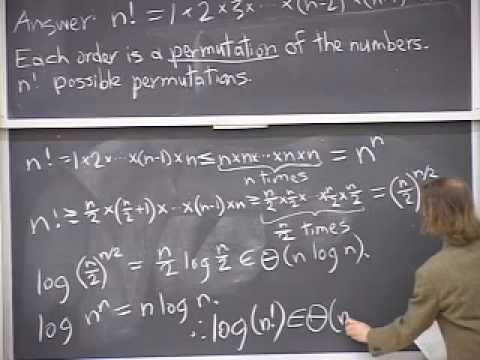 Answer: n! = 1×2×3×⋯×(n-2)×(n-1)×n
Each order is a permutation of the numbers.
n! possible permutations.
n! = 1×2×⋯×(n-1)×n ≤ n×n×⋯×n×n = n^n
n times
n! ≥ n/2×(n/2+1)×⋯×(n-1)×n ≥ n/2×n/2×⋯×n/2×n/2 = (n/2)^(n/2)
n/2 times
log (n/2)^(n/2) = n/2 log n/2 ∈ Θ(n log n).
log n^n = n log n.
∴ log(n!) ∈ Θ(n